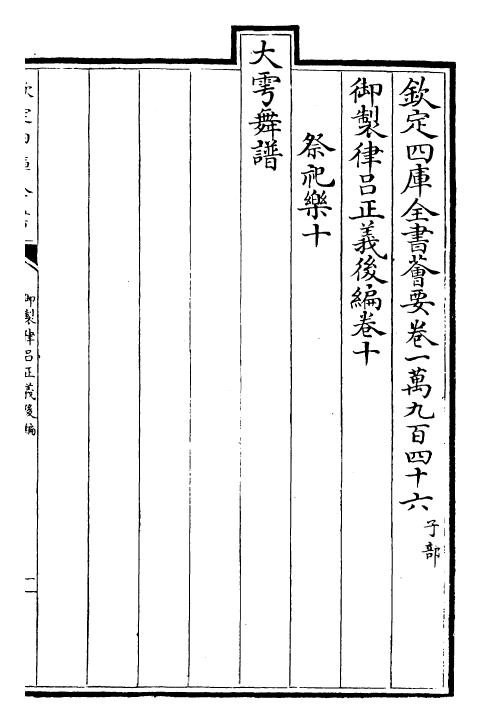 欽定四庫全書薈要卷一萬九百四十六子部
御製律呂正義後編卷十
祭祀樂十
大雩舞譜
欽定四庫全書
御製律呂正義後編
一